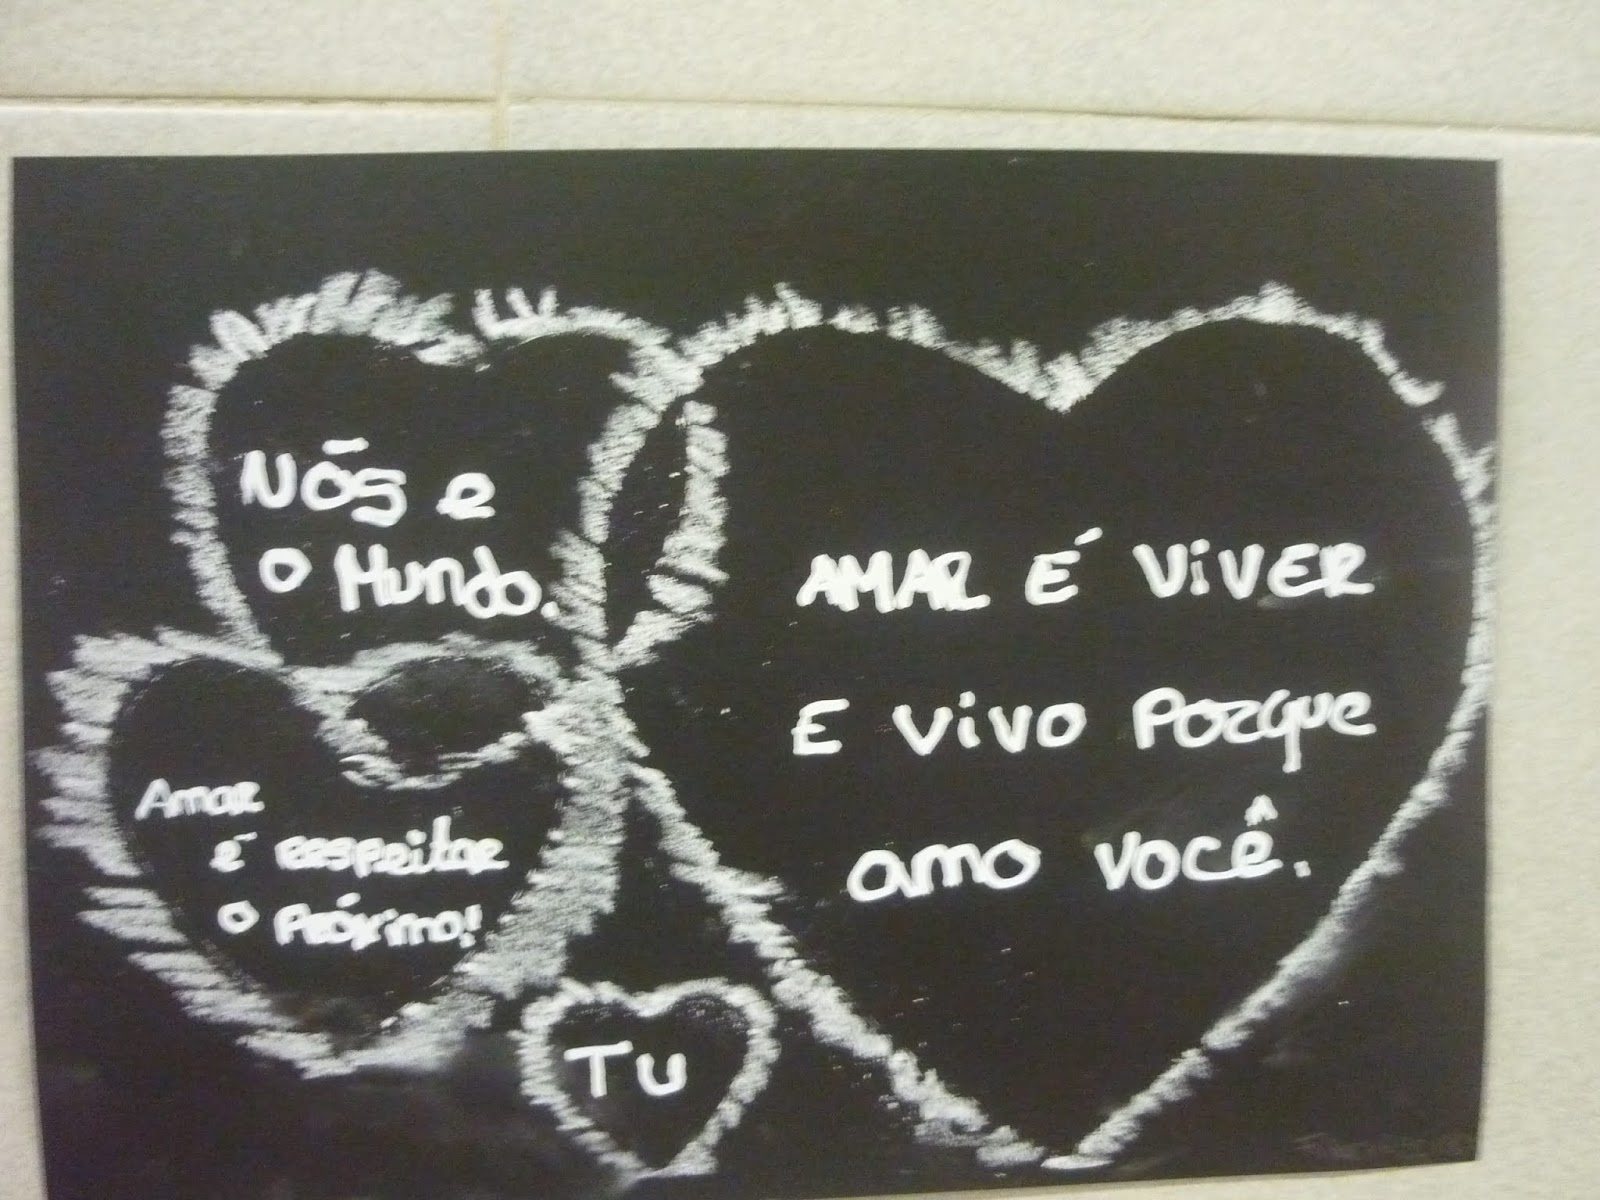 Nós e
o Mundo.
Amar
é respeitar
o Próximo!
TU
AMAR É ViVER
E ViVO PORque
amo você.